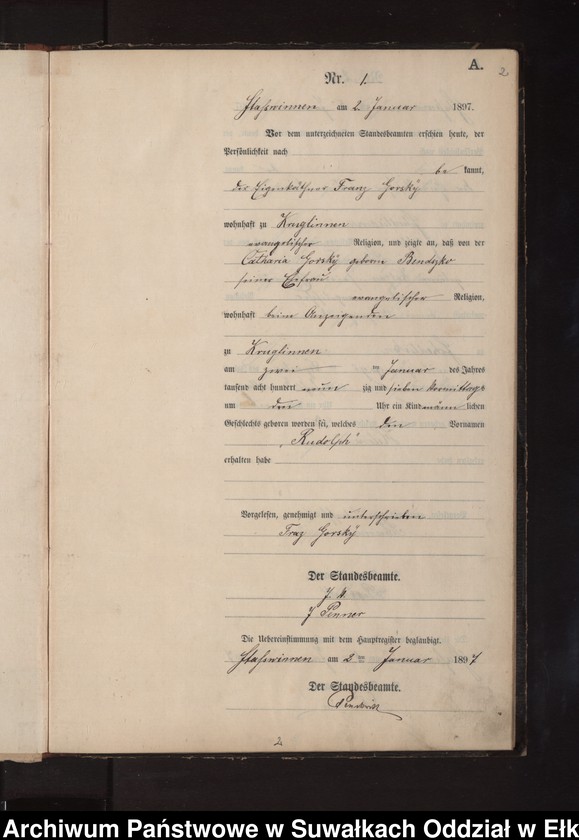 A.
2
Nr. 1.
Staßwinnen am 2. Januar 1897.
Vor dem unterzeichneten Standesbeamten erschien heute, der
Persönlichkeit nach
be kannt,
der Eigenkäthner Franz Gorsky
wohnhaft zu Kruglinnen
evangelischer Religion, und zeigte an, daß von der
Catharia Gorsky geborne Bendzko
seiner Ehefrau
evangelischer Religion,
wohnhaft beim Anzeigenden
zu Kruglinnen
am zwei ten Januar des Jahres
tausend acht hundert neun zig und sieben Vormittags
um drei Uhr ein Kind männ lichen
Geschlechts geboren worden sei, welches den Vornamen
„Rudolph"
erhalten habe
Vorgelesen, genehmigt und unterschrieben
Franz Gorsky
Der Standesbeamte.
J. V.
Penner
Die Uebereinstimmung mit dem Hauptregister beglaubigt.
Staßwinnen am 2 ten Januar 1897
Der Standesbeamte.
2
Archiwum Państwowe w Suwałkach Oddział w Ełk